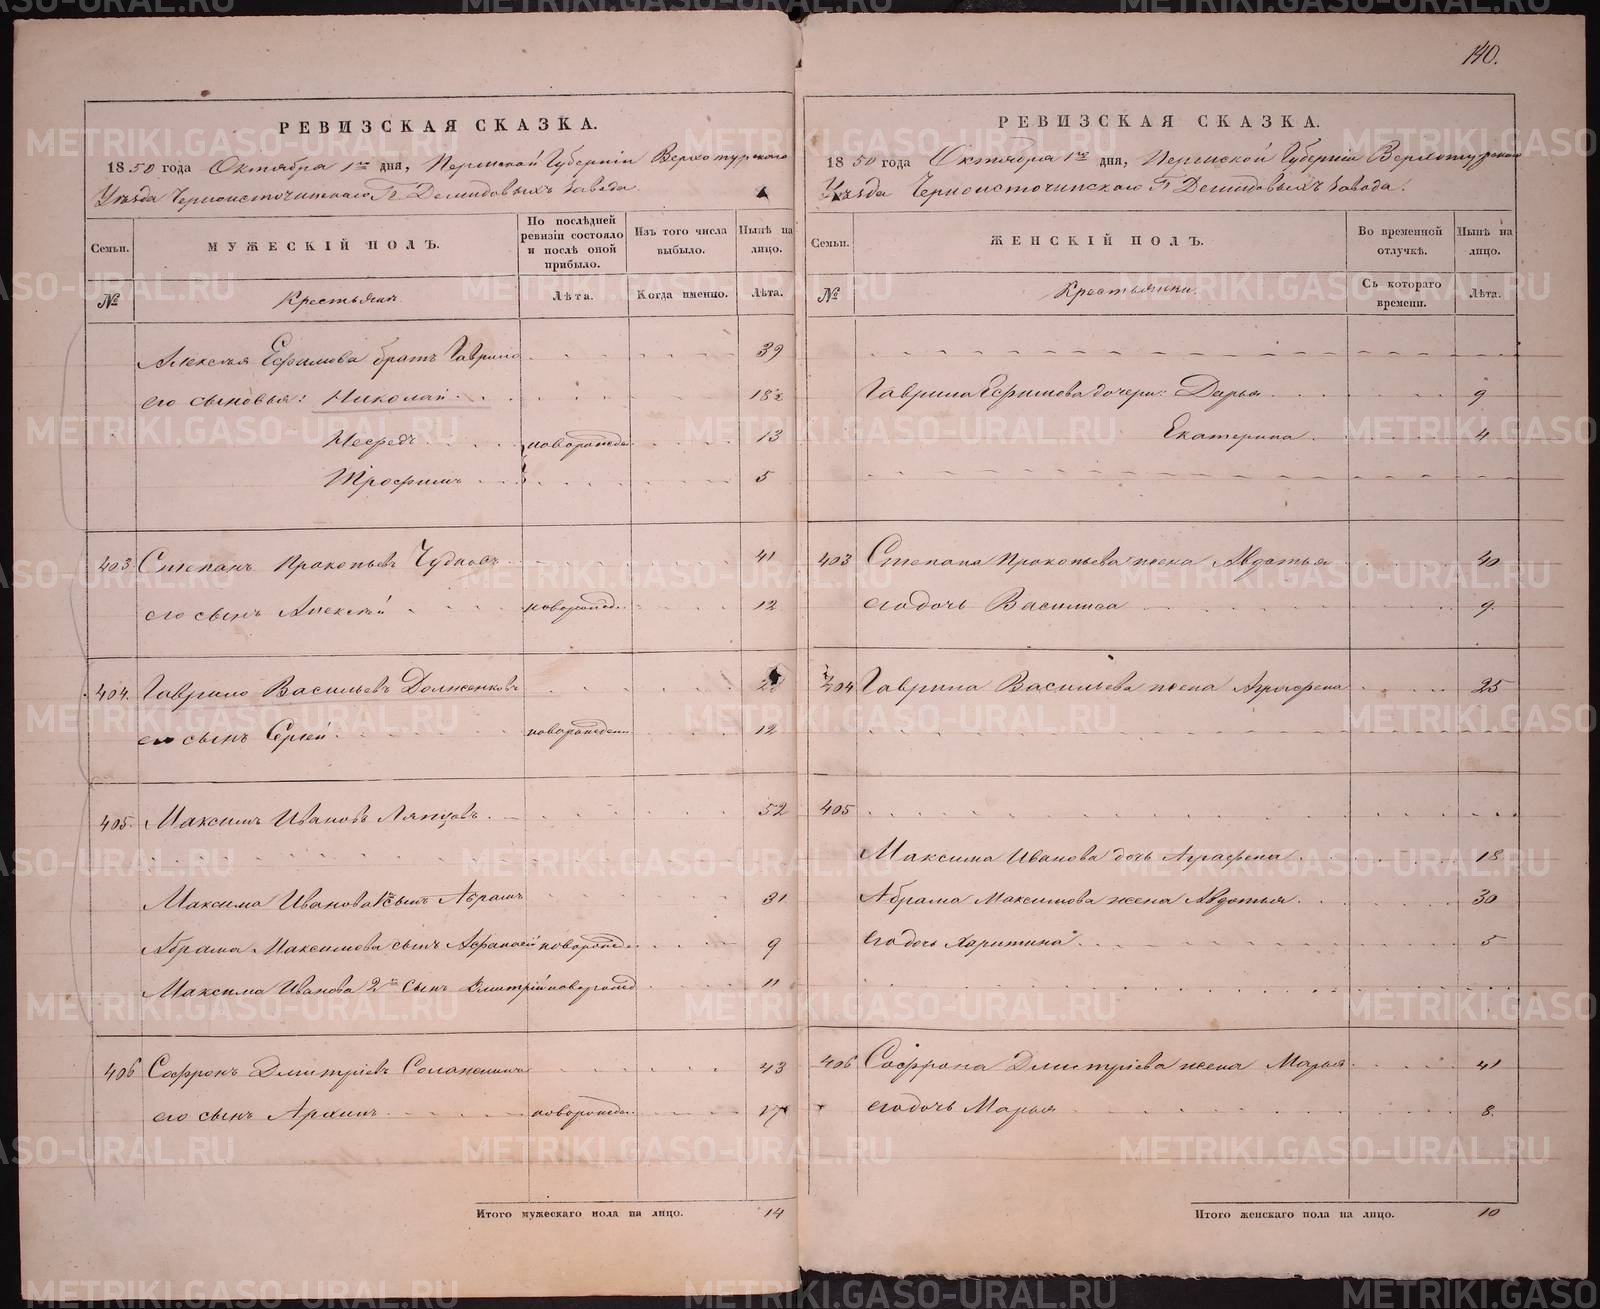 140.
РЕВИЗСКАЯ СКАЗКА.
1850 года Октября 1го дня, Пермской Губернiи Верхотурскаго
Уѣзда Черноисточинскаго Гг Демидовыхъ завода.
Семьи.
МУЖЕСКIЙ ПОЛЪ.
По послѣдней ревизiи состояло и послѣ оной прибыло.
Изъ того числа выбыло.
Нынѣ на лицо.
№
Крестьянъ
Лѣта.
Когда именно.
Лѣта.
Алексѣя Ефимова братъ Гаврило 39
его сыновья: Николай 18½
новорожде 13
Трофимъ 5
403 Степанъ Прокопьевъ 41
его сынъ Алексѣй новорожд. 12
404. Гаврило Васильевъ Долженковъ
его сынъ Сергѣй новорожден 12
405. Максимъ Ивановъ Ляпцовъ 52
Максима Иванова 1й сынъ Абрамъ 31
Абрама Максимова сынъ Афанасей новорожде 9
Максима Иванова 2й сынъ Дмитрiй новорожд 11
406 Софронъ Дмитрiевъ 43
его сынъ Архипъ новорожде. 17
Итого мужескаго пола на лицо. 14
РЕВИЗСКАЯ СКАЗКА.
1850 года Октября 1го дня, Пермской Губернiи Верхотурскаго
Уѣзда Черноисточинскаго Гг Демидовыхъ завода.
Семьи.
ЖЕНСКIЙ ПОЛЪ.
Во временной отлучкѣ.
Нынѣ на лицо.
№
Крестьянки.
Съ котораго времени.
Лѣта.
Гаврила Ефимова дочери: Дарья 9
Екатерина 4
403 Степана Прокопьева жена Авдотья 40
его дочь Василиса 9
404 Гаврила Васильева жена Аграфена 25
405
Максима Иванова дочь Аграфена 18
Абрама Максимова жена Авдотья 30
его дочь Харитина 5
406 Софрона Дмитрiева жена Марья 41
его дочь Марья 8
Итого женскаго пола на лицо. 10
METRIKI.GASO-URAL.RU